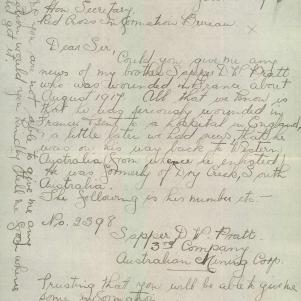 Hon Secretary.
Red Cross Information Bureau.
Dear Sir
Could you give me any
news of my brother Sapper D W Pratt
who was wounded in France about
August 1917. All that we know is
that he was seriously wounded in
France sent to a hospital in England,
a little later we had news that he
was on his way back to Western
Australia from whence he enlisted
He was formerly of Dry Creek, South
Australia.
The following is his number etc—
No. 2398
Sapper D W Pratt.
3rd Company
Australian Mining Corp.
Trusting that you will be able to give me
some information
you are not able to give me any
would you kindly tell me from where
get it